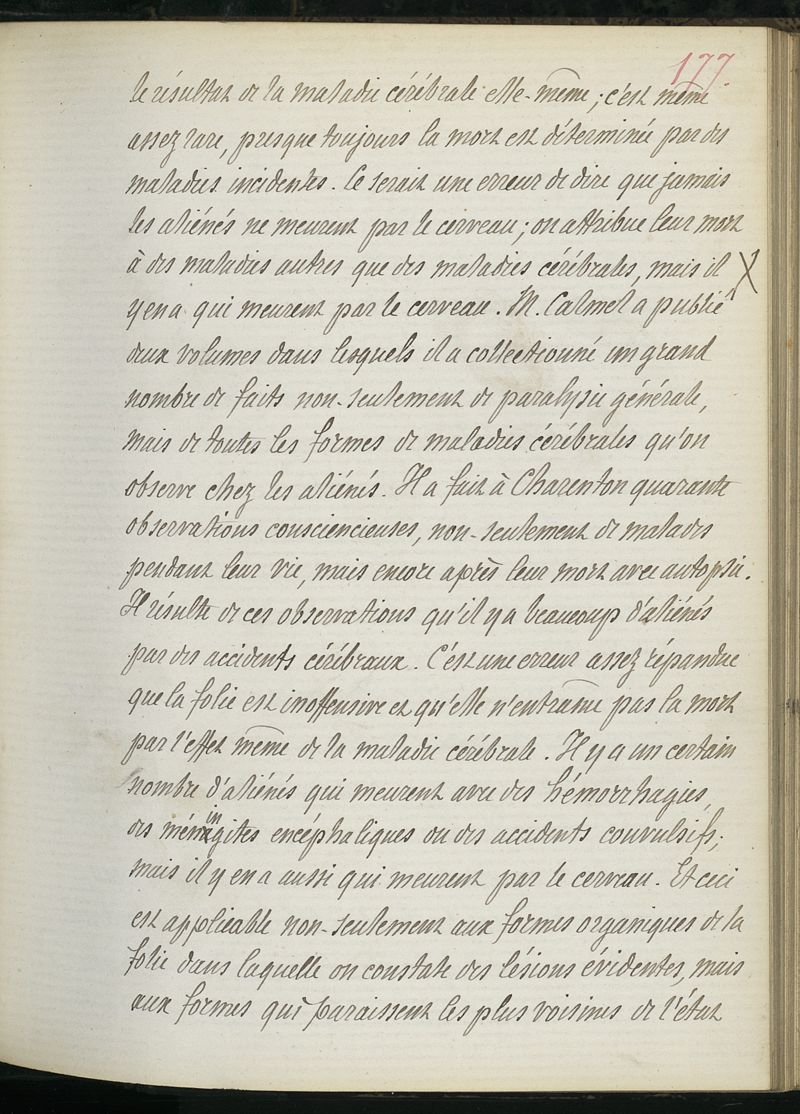 177.
le résultat de la maladie cérébrale elle-même; c'est même
assez rare, presque toujours la mort est déterminée par des
maladies incidentes. Ce serait une erreur de dire que jamais
les aliénés ne meurent par le cerveau; on attribue leur mort
à des maladies autres que des maladies cérébrales, mais il X
y en a qui meurent par le cerveau. M. Calmel a publié
deux volumes dans lesquels il a collectionné un grand
nombre de faits non-seulement de paralysie générale,
mais de toutes les formes de maladies cérébrales qu'on
observe chez les aliénés. Il a fait à Charenton quarante
observations consciencieuses, non-seulement de malades
pendant leur vie, mais encore après leur mort avec autopsie.
Il résulte de ces observations qu'il y a beaucoup d'aliénés
par des accidents cérébraux. C'est une erreur assez répandue
que la folie est inoffensive et qu'elle n'entraîne pas la mort
par l'effet même de la maladie cérébrale. Il y a un certain
nombre d'aliénés qui meurent avec des hémorrhagies,
des méningites encéphaliques ou des accidents convulsifs;
mais il y en a aussi qui meurent par le cerveau. Et ceci
est applicable non-seulement aux formes organiques de la
folie dans laquelle on constate des lésions évidentes, mais
aux formes qui paraissent les plus voisines de l'état